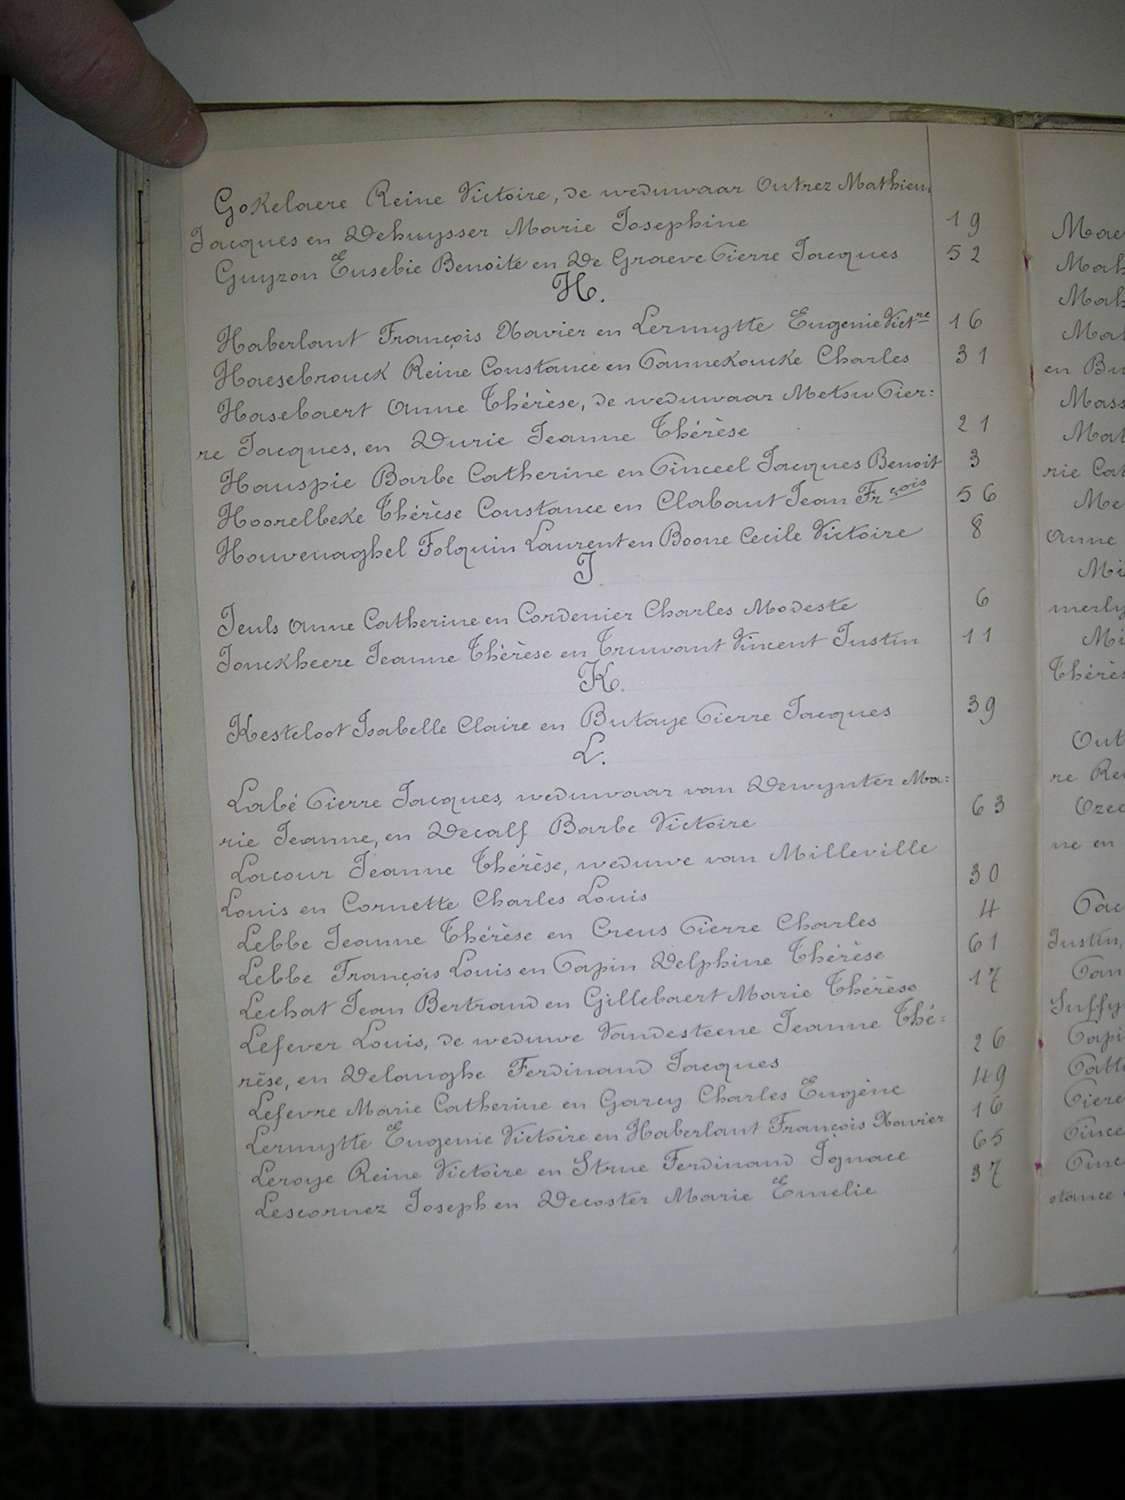 Gokelaere Reine Victoire, de weduwaar Outrez Mathieu,
Jacques en Dehuysser Marie Josephine 19
Guyzon Eusebie Benoite en De Graeve Pierre Jacques 52
H.
Haberlant François Xavier en Lermytte Eugenie Victre 16
Haesebrouck Reine Constance en Pannekoucke Charles 31
Hasebaert Anne Thérèse, de weduwaar Metsu Pier:
re Jacques, en Durie Jeanne Thérèse 21
Hauspie Barbe Catherine en Pinceel Jacques Benoit 3
Hoorelbeke Thérèse Constance en Clabaut Jean Frçois 56
Houvenaghel Folquin Laurent en Boone Cecile Victoire 8
J
Jeuls Anne Catherine en Cordenier Charles Modeste 6
Jonckheere Jeanne Thérèse en Truwant Vincent Justin 11
K.
Kesteloot Isabelle Claire en Butaye Pierre Jacques 39
L.
Labé Pierre Jacques, weduwaar van Dewynter Ma:
rie Jeanne, en Decalf Barbe Victoire 63
Lacour Jeanne Thérèse, weduwe van Milleville
Louis en Cornette Charles Louis 30
Lebbe Jeanne Thérèse en Creus Pierre Charles 4
Lebbe François Louis en Papin Delphine Thérèse 61
Lechat Jean Bertrand en Gillebaert Marie Thérèse 17
Lefever Louis, de weduwe Vandesteene Jeanne Thé:
rèse, en Delanghe Ferdinand Jacques 26
Lefevre Marie Catherine en Garcy Charles Eugène 49
Lermytte Eugenie Victoire en Haberlant François Xavier 16
Leroye Reine Victoire en Strue Ferdinand Ignace 65
Lescornez Joseph en Decoster Marie Emelie 37